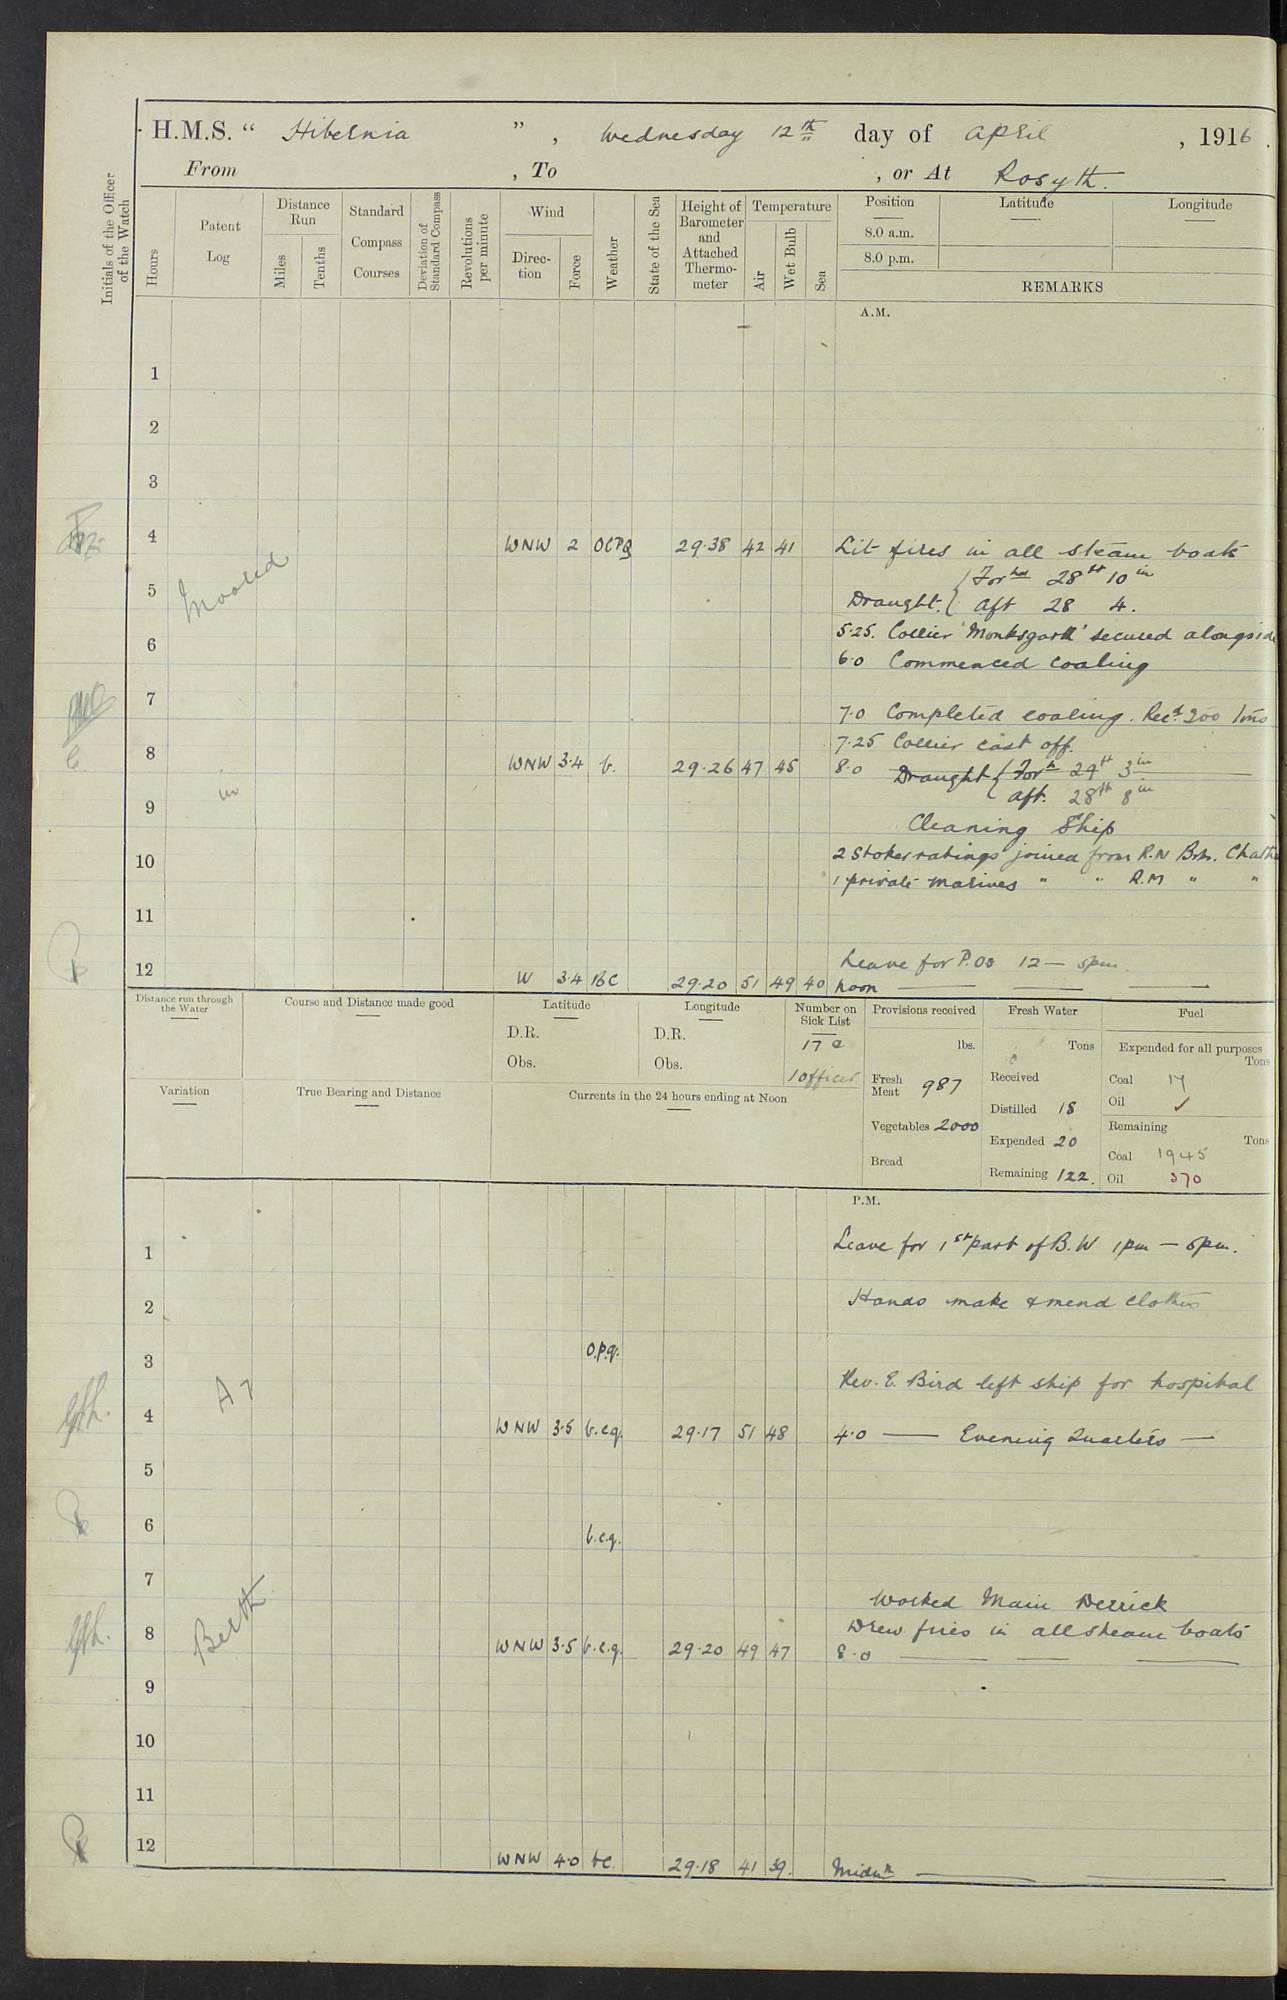 H.M.S. " Hibernia ", Wednesday 12th day of April, 1916.
From , To , or At Rosyth.
Initials of the Officer of the Watch
Hours
Patent Log
Distance Run
Miles
Tenths
Standard Compass Courses
Deviation of Standard Compass
Revolutions per minute
Wind
Direction
Force
Weather
State of the Sea
Height of Barometer and Attached Thermometer
Temperature
Air
Wet Bulb
Sea
Position
Latitude
Longitude
8.0 a.m.
8.0 p.m.
REMARKS
A.M.
1
2
3
4 WNW 2 OCPQ 29.38 42 41 Lit fires in all steam boats
Moored
5 Draught. { Forwd 28ft 10in
Aft 28 4.
5.25. Collier 'Monksgarth' secured alongside
6 6.0 Commenced coaling
7 7.0 Completed coaling. Recd 200 tons
7.25 Collier cast off.
8 WNW 3.4 b. 29.26 47 45 8.0
Draught { Ford 29ft 3in
in
9 Aft. 28ft 8in
Cleaning Ship
10 2 Stoker ratings joined from R.N Brks.
1 private marines " " R.M " "
11
Leave for P.Os 12 — 5pm.
12 W 3.4 BC 29.20 51 49 40 Noon
Distance run through the Water
Course and Distance made good
Latitude
D.R.
Obs.
Longitude
D.R.
Obs.
Number on Sick List
17
1 officer
Provisions received
lbs.
Fresh Meat 987
Vegetables 2000
Bread
Fresh Water
Tons
Received
Distilled 18
Expended 20
Remaining 122.
Fuel
Expended for all purposes
Tons
Coal 17
Oil ✓
Remaining
Tons
Coal 1945
Oil 370
Variation
True Bearing and Distance
Currents in the 24 hours ending at Noon
P.M.
1 Leave for 1st part of B.W 1pm — 5pm.
2 Hands make & mend clothes
3 o.p.q.
Rev. E. Bird left ship for hospital
4 WNW 3.5 b.c.q. 29.17 51 48 4.0 — Evening Quarters —
5
6 b.c.q.
7
Worked Main Derrick
Berth
8 Drew fires in all steam boats
WNW 3.5 b.c.q. 29.20 49 47 8.0
9
10
11
12 WNW 4.0 bc. 29.18 41 39. Midnt